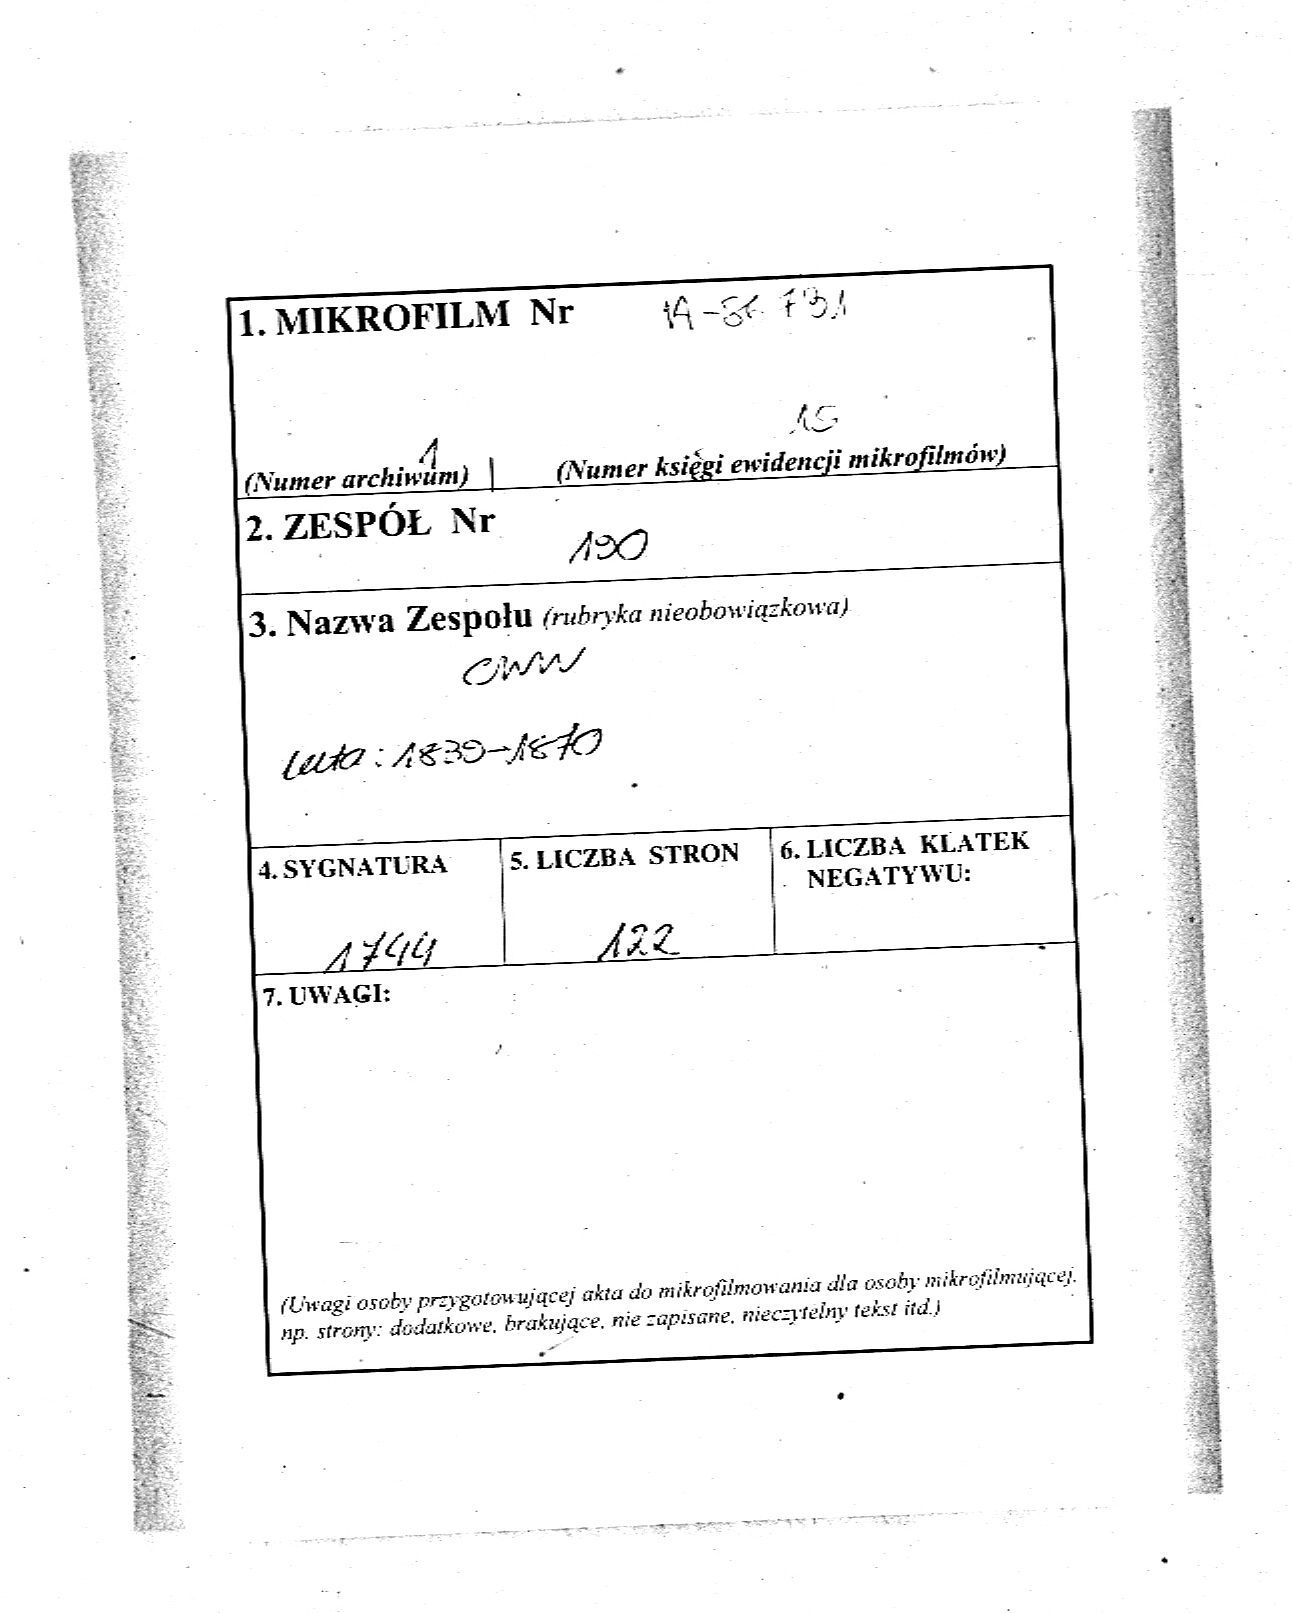 1. MIKROFILM Nr
15
1
(Numer archiwum) | (Numer księgi ewidencji mikrofilmów)
2. ZESPÓŁ Nr
190
3. Nazwa Zespołu (rubryka nieobowiązkowa)
CWW
lata: 1839-1870
4. SYGNATURA 5. LICZBA STRON 6. LICZBA KLATEK
NEGATYWU:
1744 122
7. UWAGI:
(Uwagi osoby przygotowującej akta do mikrofilmowania dla osoby mikrofilmującej.
np. strony: dodatkowe, brakujące, nie zapisane, nieczytelny tekst itd.)